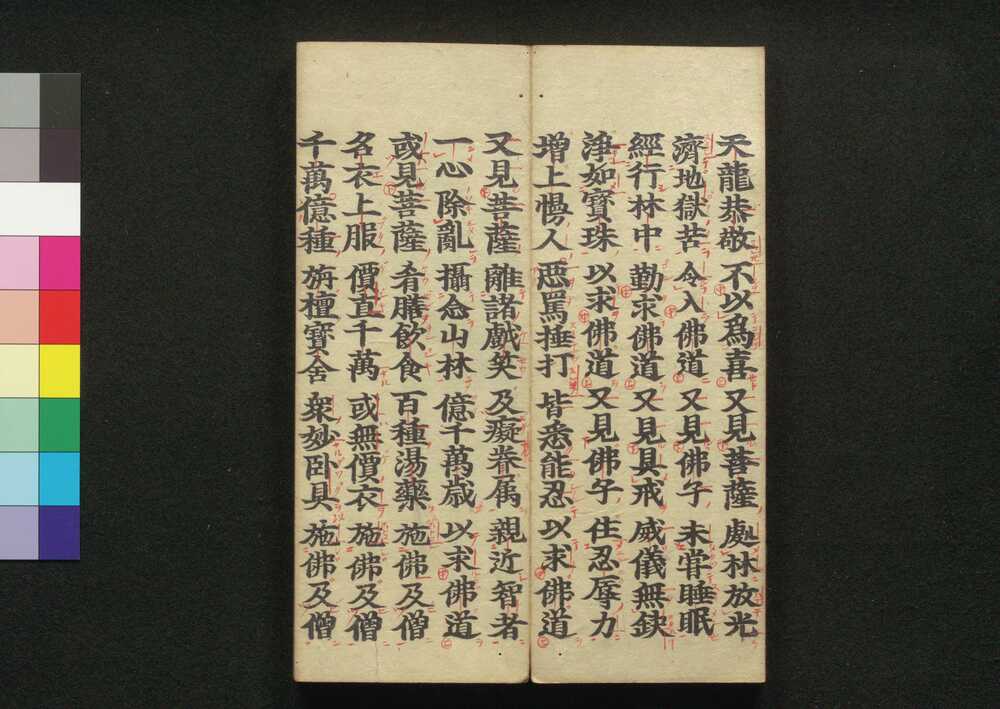 天龍恭敬 不以為喜 又見菩薩 處林放光
濟地獄苦 令入佛道 又見佛子 未甞睡眠
經行林中 勤求佛道 又見具戒 威儀無缺
淨如寶珠 以求佛道 又見佛子 住忍辱力
增上慢人 惡罵捶打 皆悉能忍 以求佛道
又見菩薩 離諸戲笑 及癡眷属 親近智者
一心除亂 攝念山林 億千萬歲 以求佛道
或見菩薩 肴膳飲食 百種湯藥 施佛及僧
名衣上服 價直千萬 或無價衣 施佛及僧
千萬億種 旃檀寶舍 衆妙卧具 施佛及僧